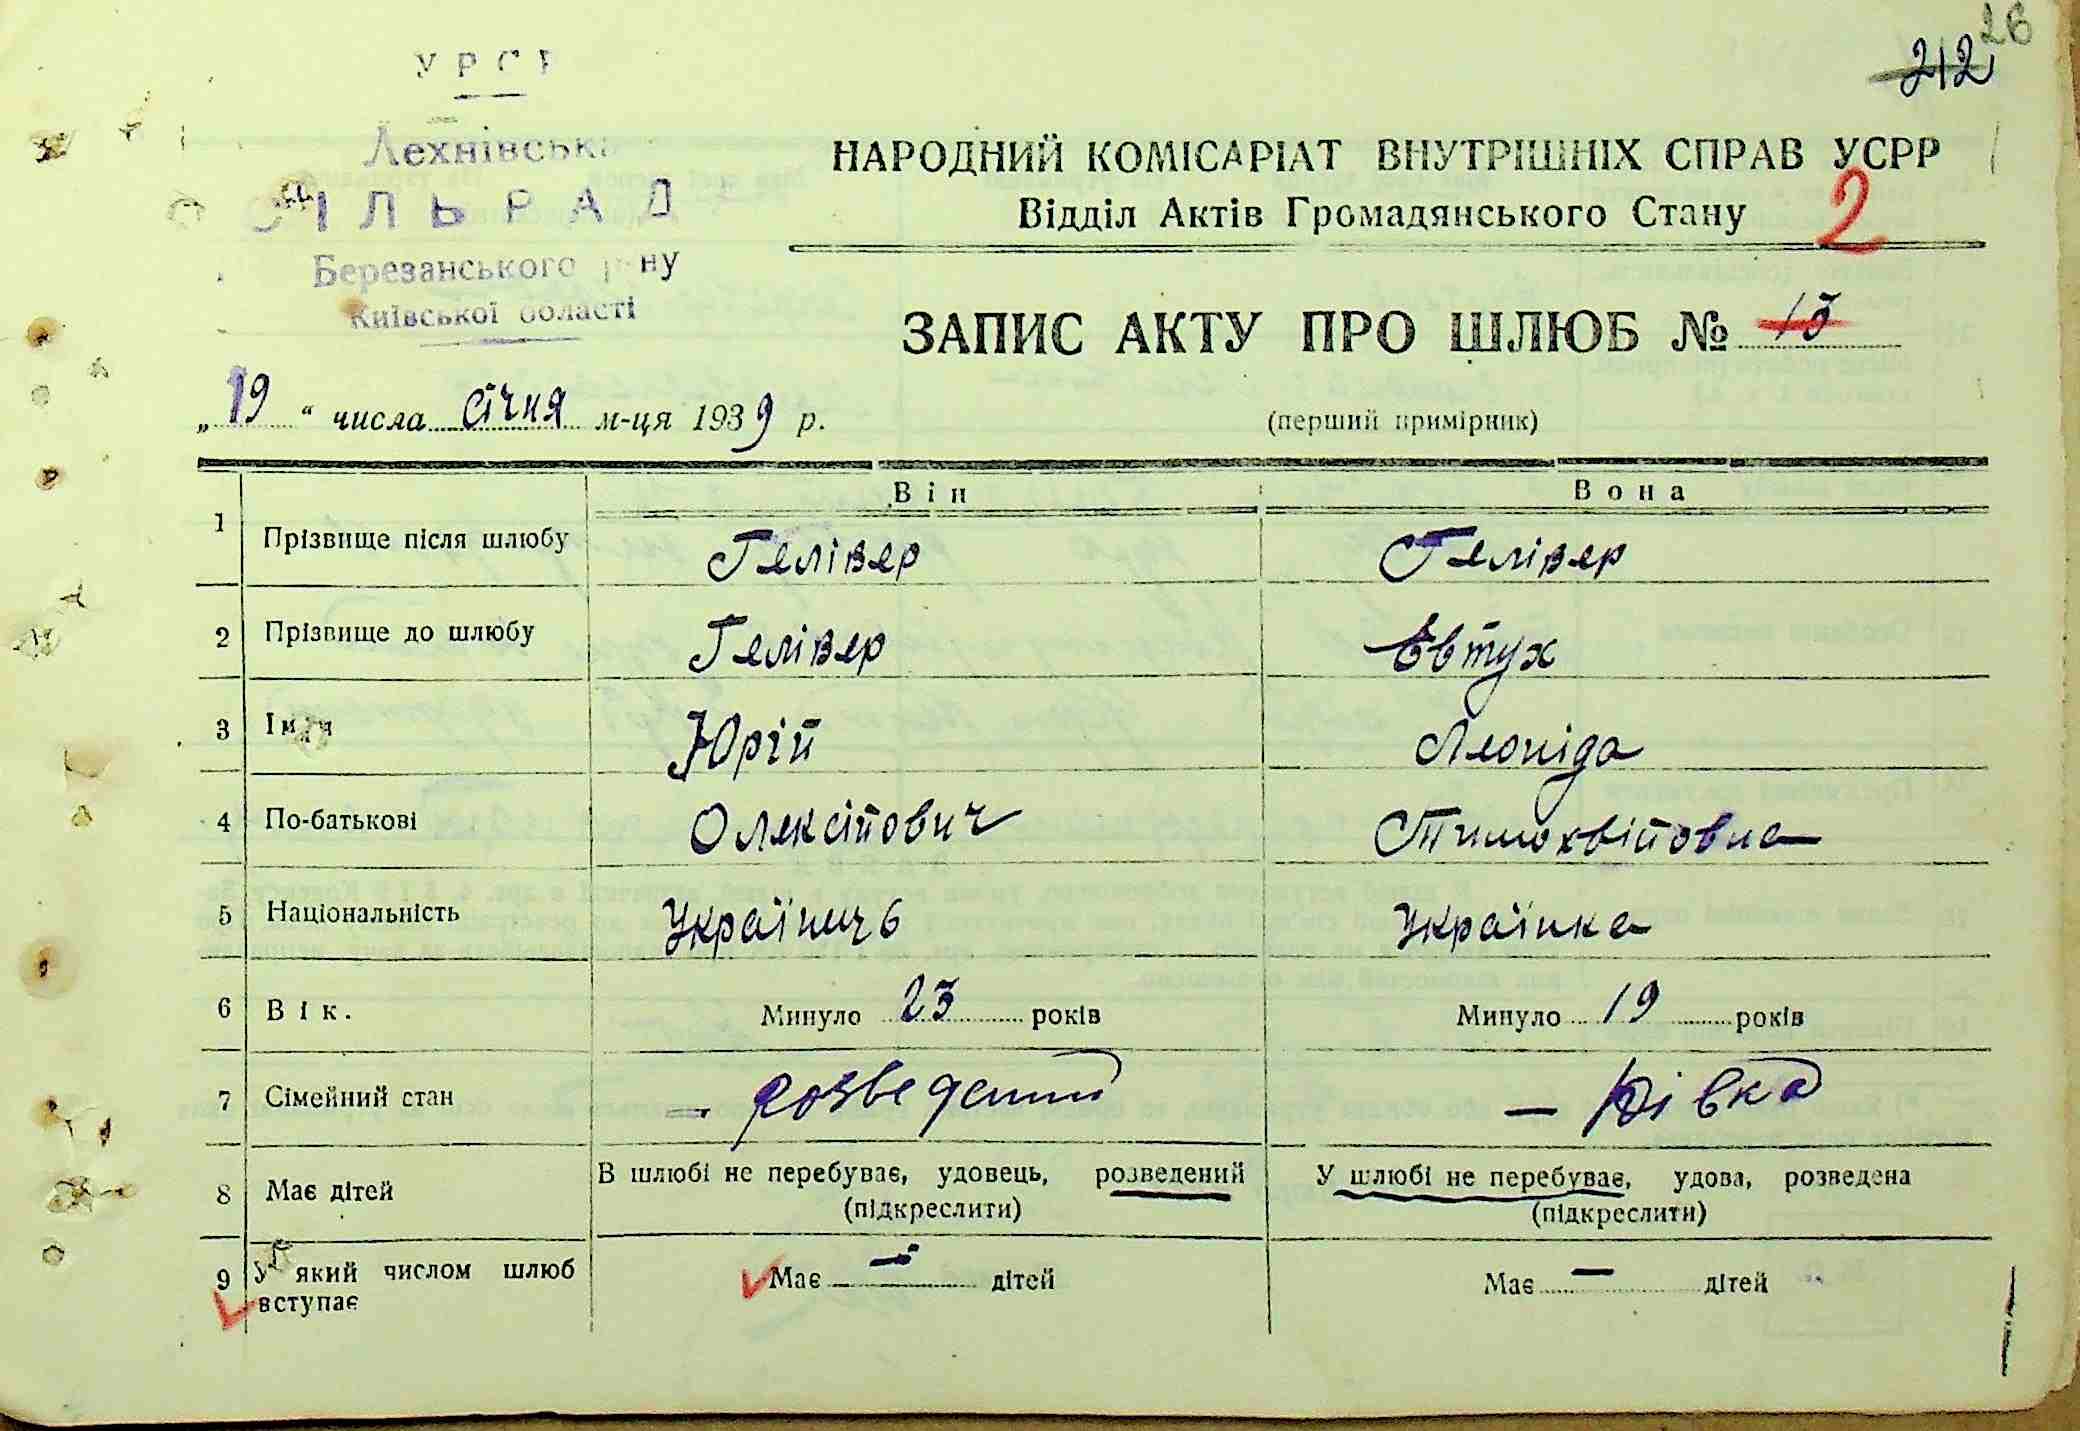 26
212
УРСР
Лехнівська
СІЛЬРАДА
Березанського р-ну
Київської області
НАРОДНИЙ КОМІСАРІАТ ВНУТРІШНІХ СПРАВ УСРР
Відділ Актів Громадянського Стану
2
ЗАПИС АКТУ ПРО ШЛЮБ № 13
„19“ числа січня м-ця 1939 р.
(перший примірник)
Він Вона
1 Прізвище після шлюбу Гелівер Гелівер
2 Прізвище до шлюбу Гелівер Євтух
3 Імя Юрій Леоніда
4 По-батькові Олексійович Тимохвійовна
5 Національність Українець Українка
6 Вік. Минуло 23 років Минуло 19 років
7 Сімейний стан — розведений — Дівка
8 Має дітей В шлюбі не перебуває, удовець, розведений У шлюбі не перебуває, удова, розведена
(підкреслити) (підкреслити)
9 У який числом шлюб вступає Має — дітей Має — дітей